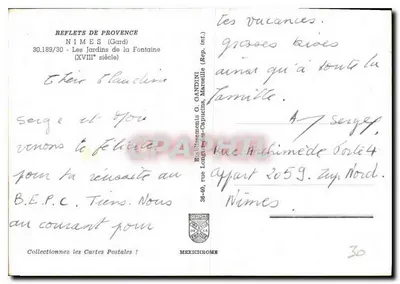 REFLETS DE PROVENCE
NIMES (Gard)
30.189/30 - Les Jardins de la Fontaine
(XVIIIe siècle)
Chère Claudine
Serge et Moi
venons te féliciter
pour ta réussite au
B.E.P.C. Tiens. Nous
au courant pour
Collectionnez les Cartes Postales !
Etablissements O. GANDINI
36-40, rue Longue-des-Capucins, Marseille (Rep. int.)
MEXICHROME
tes vacances.
grosses bises
ainsi qu'à toute la
famille.
Serge
rue Archimède Porte 4
Appart 2059. Zup Nord.
Nîmes
30